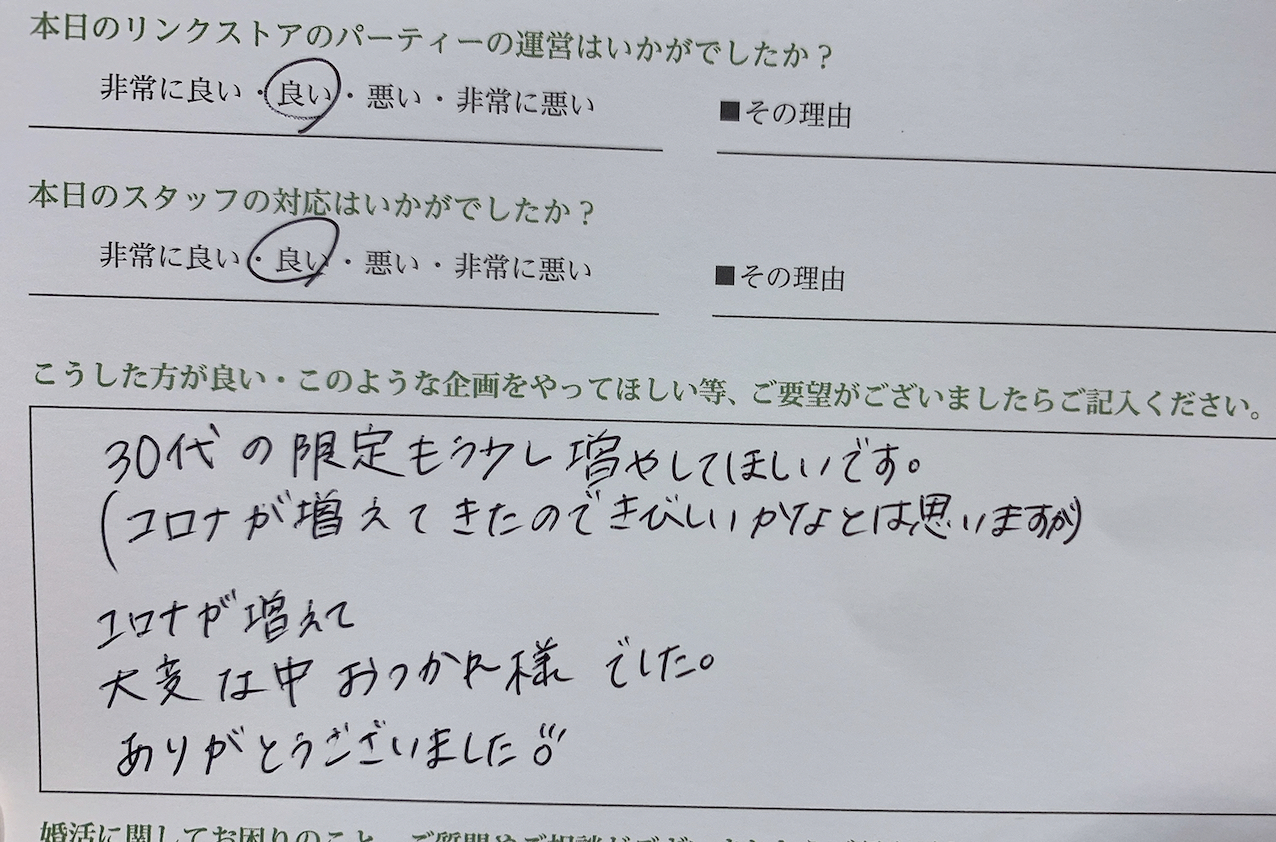 本日のリンクストアのパーティーの運営はいかがでしたか？
非常に良い・良い・悪い・非常に悪い
■その理由
本日のスタッフの対応はいかがでしたか？
非常に良い・良い・悪い・非常に悪い
■その理由
こうした方が良い・このような企画をやってほしい等、ご要望がございましたらご記入ください。
30代の限定もう少し増やしてほしいです。
(コロナが増えてきたのできびしいかなとは思いますが)
コロナが増えて
大変な中おつかれ様でした。
ありがとうございました
婚活に関してお困りのこと、ご質問やご相談がございましたら